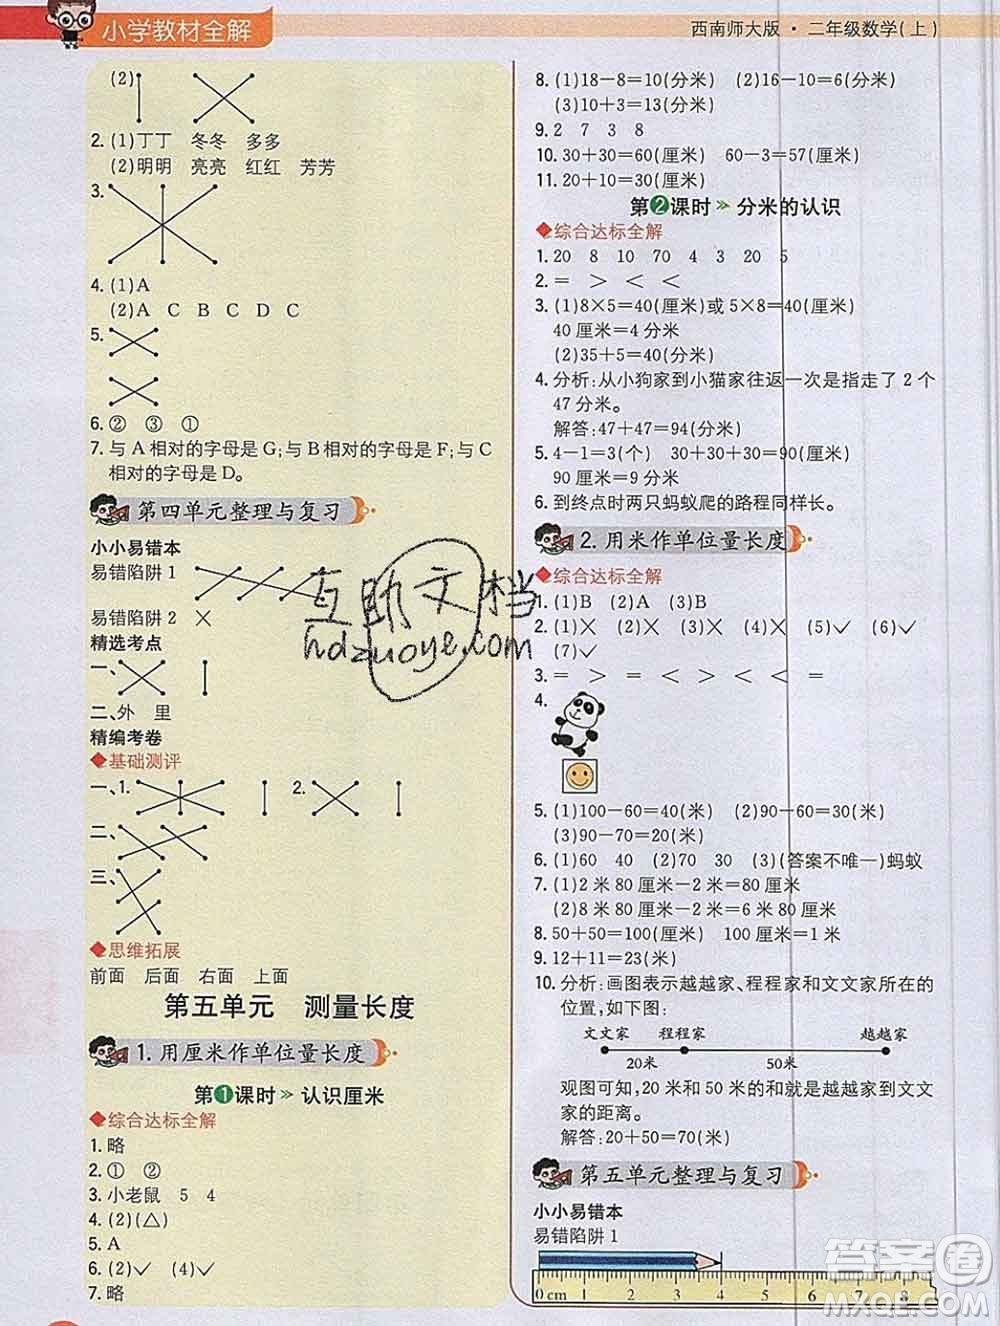 小学教材全解
西南师大版·二年级数学(上)
(2)
2. (1)丁丁 冬冬 多多
(2)明明 亮亮 红红 芳芳
3.
4. (1)A
(2)A C B C D C
5.
6. ② ③ ①
7. 与 A 相对的字母是 G;与 B 相对的字母是 F;与 C
相对的字母是 D。
第四单元整理与复习
小小易错本
易错陷阱 1
易错陷阱 2 ×
精选考点
一、
二、外 里
精编考卷
◆基础测评
一、1. 2.
二、
三、
◆思维拓展
前面 后面 右面 上面
第五单元 测量长度
1. 用厘米作单位量长度
第1课时 » 认识厘米
◆综合达标全解
1. 略
2. ① ②
3. 小老鼠 5 4
4. (2)(△)
5. A
6. (2)✓ (4)✓
7. 略
8. (1)18-8=10(分米) (2)16-10=6(分米)
(3)10+3=13(分米)
9. 2 7 3 8
10. 30+30=60(厘米) 60-3=57(厘米)
11. 20+10=30(厘米)
第2课时 » 分米的认识
◆综合达标全解
1. 20 8 10 70 4 3 20 5
2. = > < <
3. (1)8×5=40(厘米)或 5×8=40(厘米)
40 厘米=4 分米
(2)35+5=40(分米)
4. 分析:从小狗家到小猫家往返一次是指走了 2 个
47 分米。
解答:47+47=94(分米)
5. 4-1=3(个) 30+30+30=90(厘米)
90 厘米=9 分米
6. 到终点时两只蚂蚁爬的路程同样长。
2. 用米作单位量长度
◆综合达标全解
1. (1)B (2)A (3)B
2. (1)× (2)× (3)× (4)× (5)✓ (6)✓
(7)✓
3. = > = < > < < < =
4.
5. (1)100-60=40(米) (2)90-60=30(米)
(3)90-70=20(米)
6. (1)60 40 (2)70 30 (3)(答案不唯一)蚂蚁
7. (1)2 米 80 厘米-2 米=80(厘米)
(2)8 米 80 厘米-8 米=80(厘米)
8. 50+50=100(厘米) 100 厘米=1 米
9. 12+11=23(米)
10. 分析:画图表示越越家、程程家和文文家所在的
位置,如下图:
文文家 程程家 越越家
20米 50米
观图可知,20 米和 50 米的和就是越越家到文文
家的距离。
解答:20+50=70(米)
第五单元整理与复习
小小易错本
易错陷阱 1
0 cm 1 2 3 4 5 6 7 8
互助文档
hdzuoye.com
答案圈
MXQE.COM